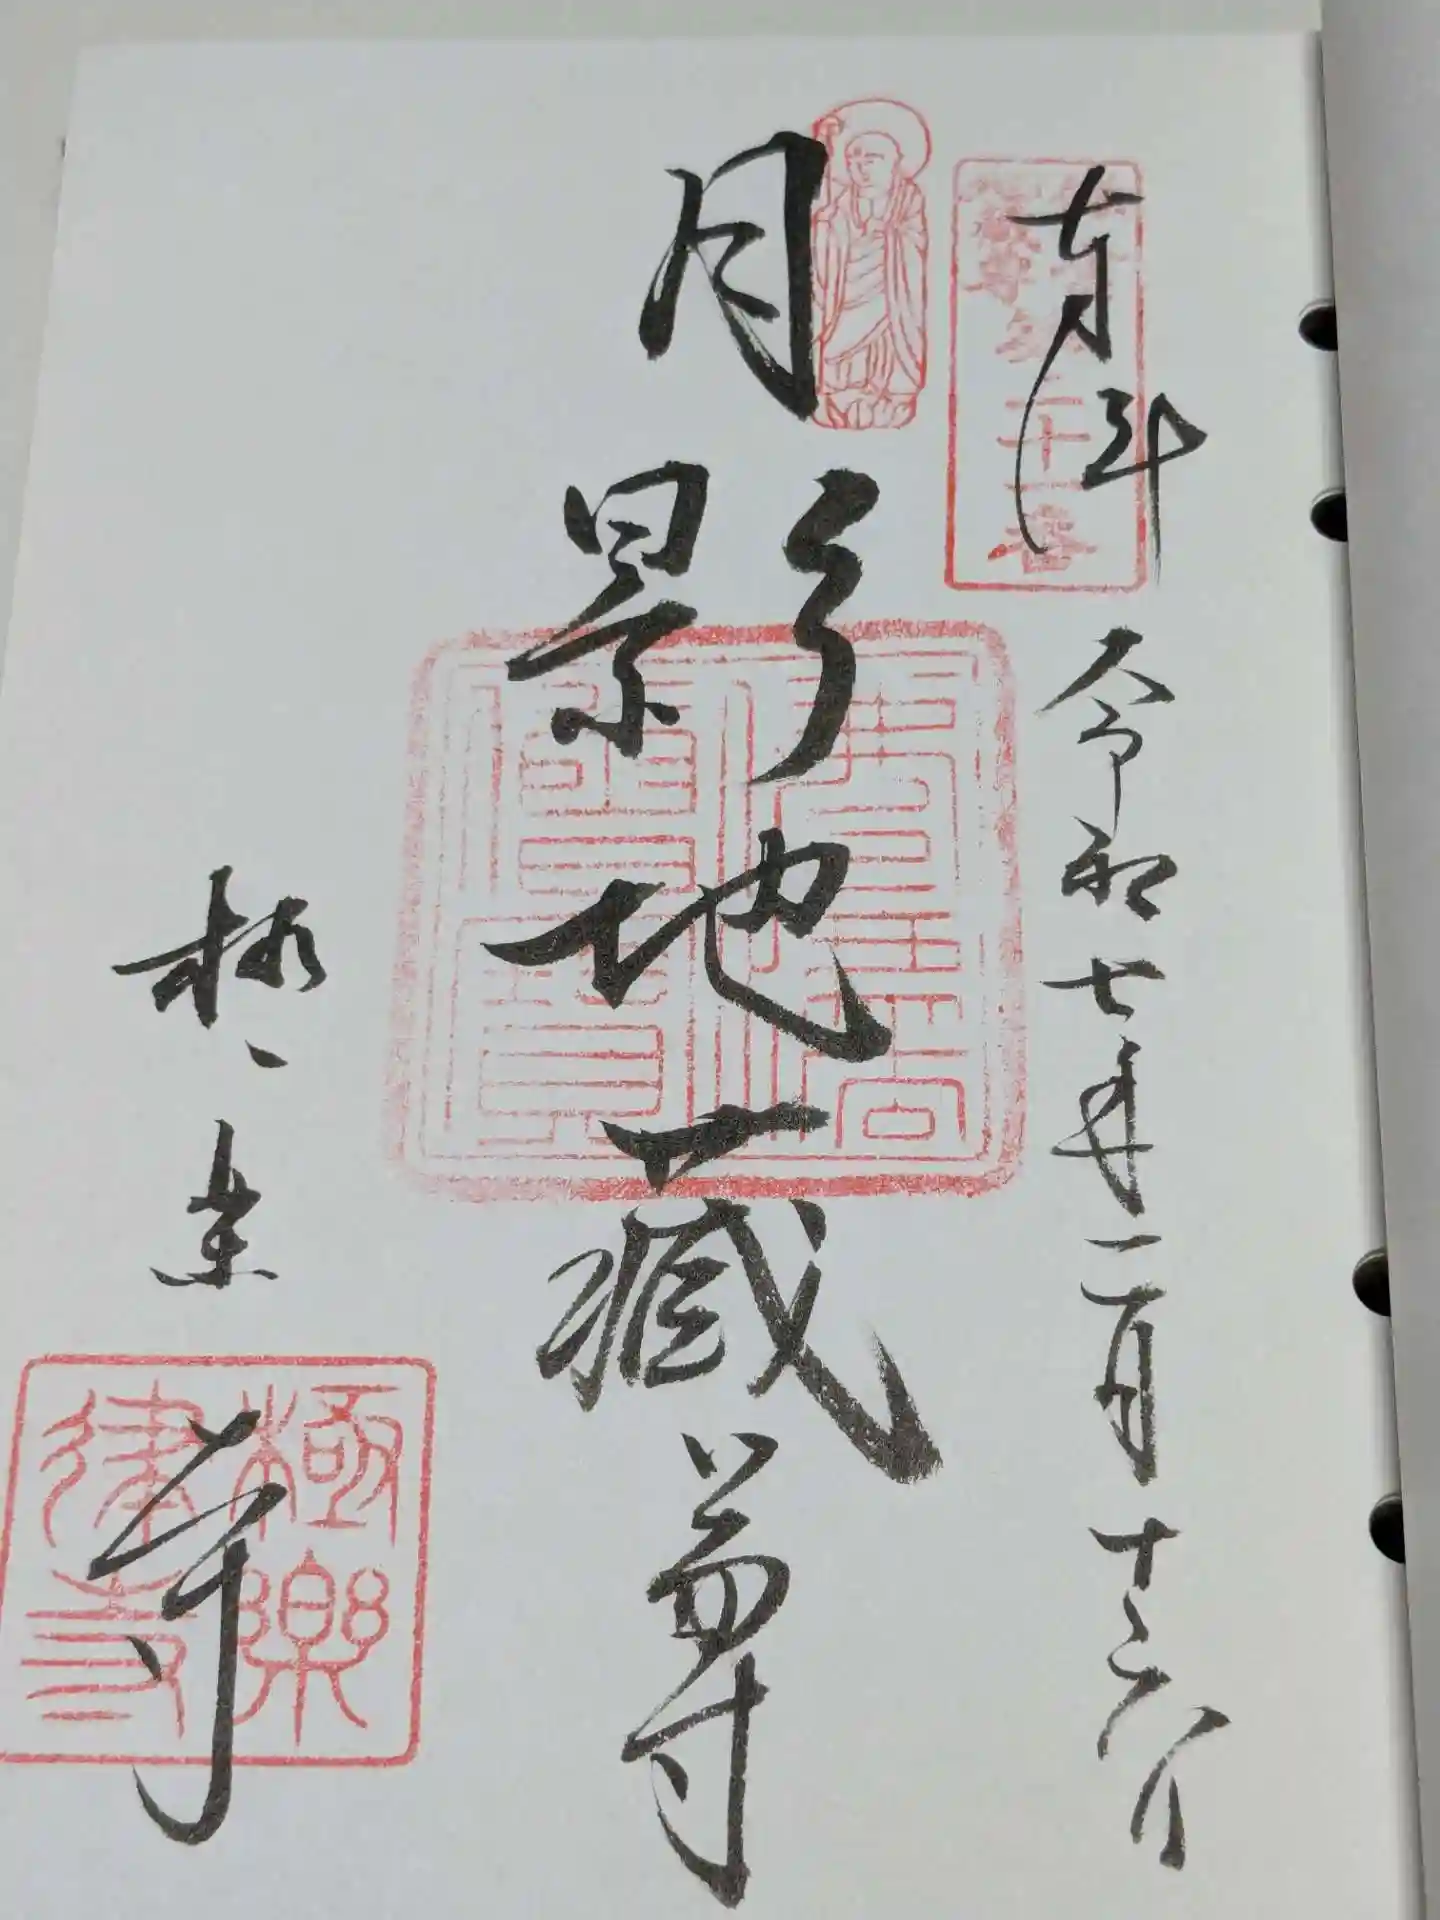 奉拝 令和七年二月十六日
二十一番
月影地蔵尊
極楽寺
極樂律寺